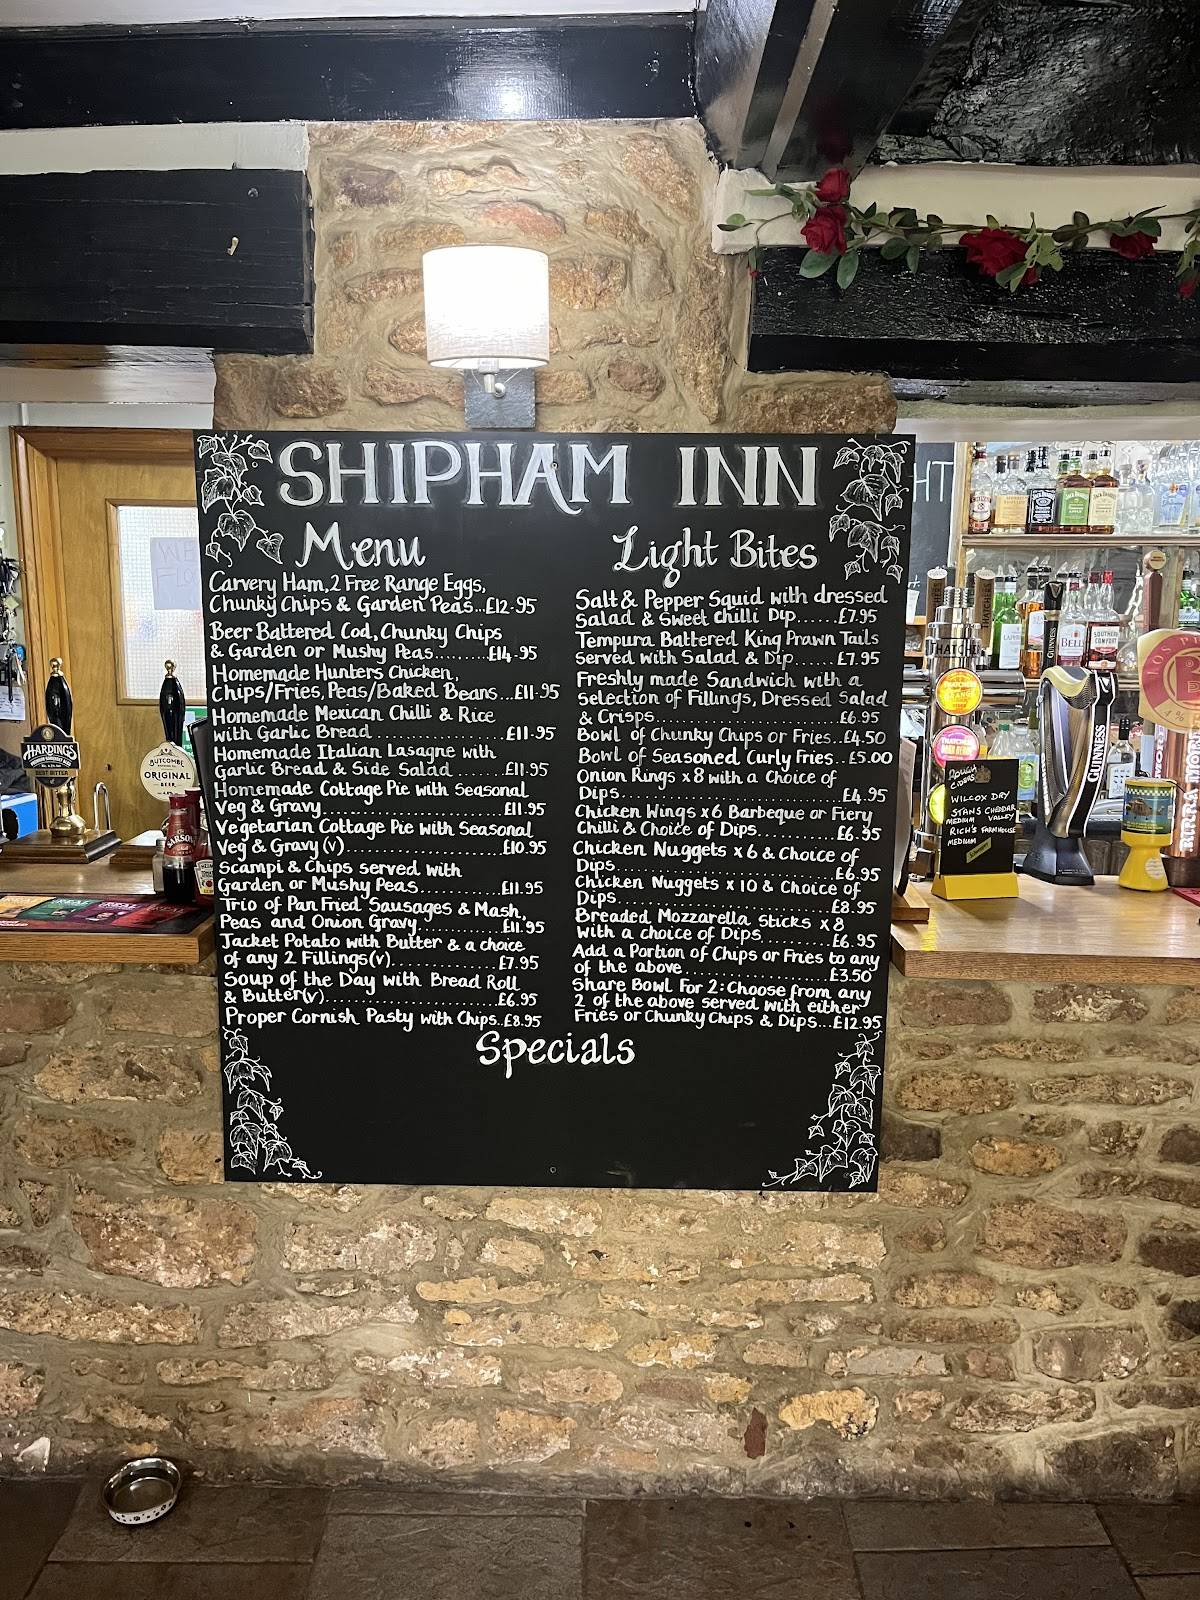 SHIPHAM INN
Menu
Carvery Ham, 2 Free Range Eggs,
Chunky Chips & Garden Peas...£12.95
Beer Battered Cod, Chunky Chips
& Garden or Mushy Peas.........£14.95
Homemade Hunters Chicken,
Chips/Fries, Peas/Baked Beans...£11.95
Homemade Mexican Chilli & Rice
with Garlic Bread.................£11.95
Homemade Italian Lasagne with
Garlic Bread & Side Salad ......£11.95
Homemade Cottage Pie with Seasonal
Veg & Gravy.......................£11.95
Vegetarian Cottage Pie with Seasonal
Veg & Gravy (v)....................£10.95
Scampi & Chips served with
Garden or Mushy Peas..........£11.95
Trio of Pan Fried Sausages & Mash,
Peas and Onion Gravy..........£11.95
Jacket Potato with Butter & a choice
of any 2 Fillings(v).............£7.95
Soup of the Day with Bread Roll
& Butter(v).....................£6.95
Proper Cornish Pasty with Chips..£8.95
Light Bites
Salt & Pepper Squid with dressed
Salad & Sweet Chilli Dip......£7.95
Tempura Battered King Prawn Tails
Served with Salad & Dip......£7.95
Freshly made Sandwich with a
Selection of Fillings, Dressed Salad
& Crisps.......................£6.95
Bowl of Chunky Chips or Fries..£4.50
Bowl of Seasoned Curly Fries..£5.00
Onion Rings x8 with a Choice of
Dips............................£4.95
Chicken Wings x6 Barbeque or Fiery
Chilli & Choice of Dips..........£6.95
Chicken Nuggets x 6 & Choice of
Dips............................£6.95
Chicken Nuggets x 10 & Choice of
Dips............................£8.95
Breaded Mozzarella Sticks x 8
with a choice of Dips..........£6.95
Add a Portion of Chips or Fries to any
of the above..................£3.50
Share Bowl For 2: Choose from any
2 of the above served with either
Fries or Chunky Chips & Dips...£12.95
Specials
HARDINGS
BEST BITTER
BUTCOMBE
ORIGINAL
BEER
SARSON'S
GREAT
HT
THATCHERS
GUINNESS
JACK DANIEL'S
BELL'S
SOUTHERN
COMFORT
BIRRA MORETTI
ROUGH
CIDERS
WILCOX DRY
STANS CHEDDAR
VALLEY
MEDIUM
RICH'S FARMHOUSE
MEDIUM